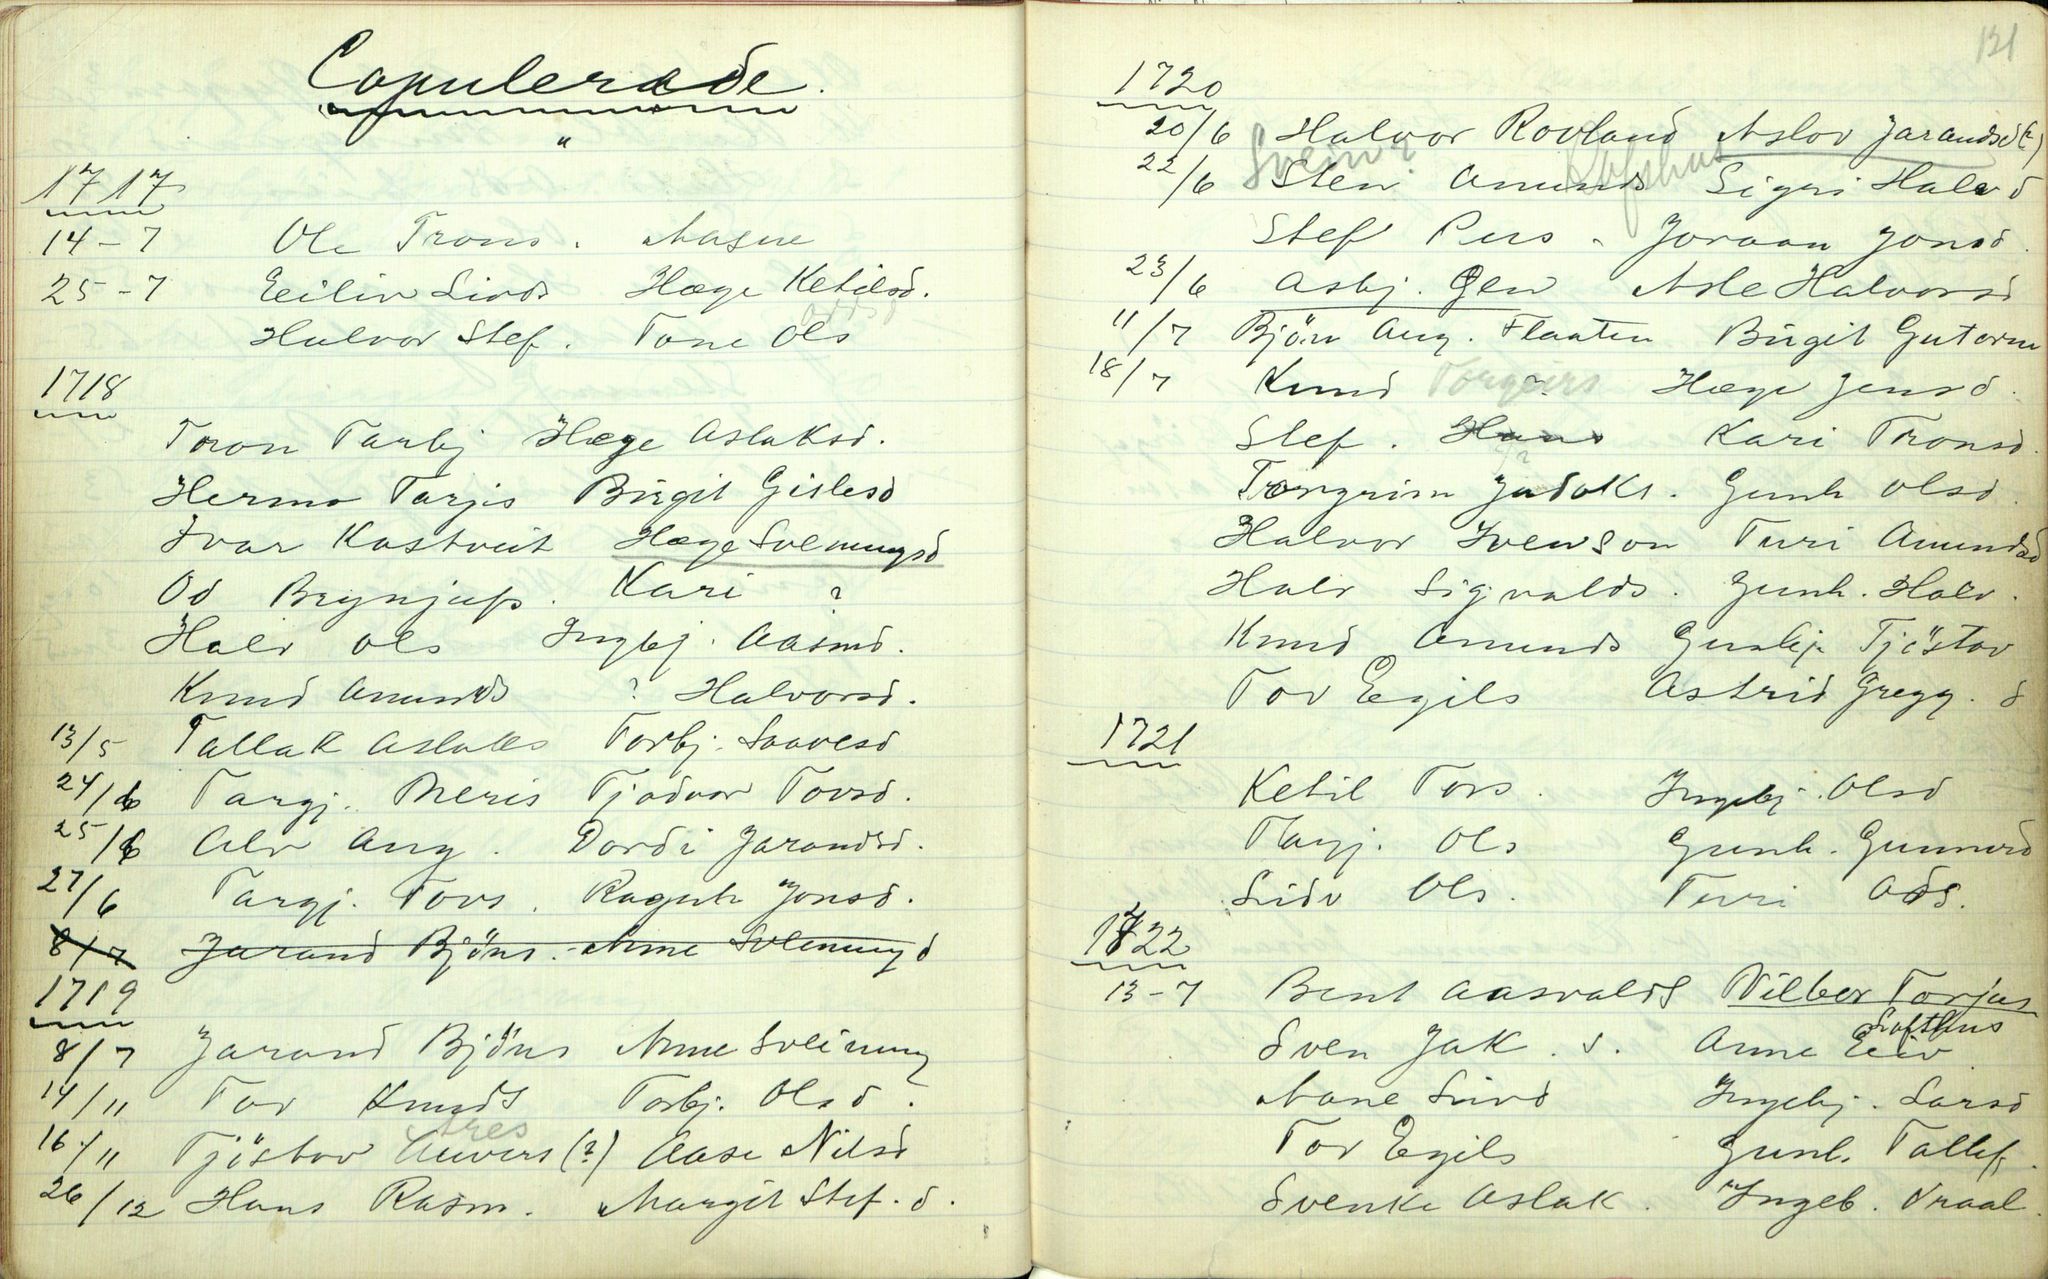 Copulerade.
"
1717
14-7 Ole Trons. Aasne
25-7 Eiliv Livds Hæge Ketilsd.
Odds
Halvor Stef. Tone Ols
1718
Tron Tarbj Hæge Aslaksd.
Hermo Tarjis Birgit Gislesd
Ivar Kostveit Hæge Svenungsd
Od Brynjufs. Kari ?
Halv Ols Ingbj. Aasmd.
Knud Amunds ? Halvorsd.
13/5 Tallak Aslaks Torbj. Saavesd
24/6 Targj. Neris Tjodvor Tovsd.
25/6 Alv Aug. Dordi Jarandsd.
27/6 Targj. Tovs. Ragnh Jonsd.
8/7 Jarand Björns. Anne Svenungd
1719
8/7 Jarand Björns Anne Sveinung
14/11 Tor Knuds Torbj. Olsd.
Ares
16/11 Tjöstov Auvers (?) Aase Nilsd
26/12 Hans Rasm. Margit Stef. d.
131
1720
20/6 Halvor Rovland Aslov Jarandsd (?)
Svein? Rofshus
22/6 Sten Amunds Sigri Halvd
Stef Pers. Joraan Jonsd.
23/6 Asbj. Glev Asle Halvorsd
11/7 Björn Aug. Flaaten Birgit Gutorm
18/7 Knud Torgeirs ? Hæge Jensd.
Stef. Hans Kari Tronsd.
?
Torgrim Jadoks. Gunh Olsd.
Halvor Ivenson Turi Amundsd
Halv Sigvalds. Gunh. Halv.
Knud Amunds Gunbj. Tjöstov
Tov Egils Astrid Gregg. d
1721
Ketil Tors. Ingebj. Olsd
Targj. Ols Gunh. Gunnersd
Lidv Ols. Turi Ods.
1722
13-7 Bent Aasvalds Vilbor Torjus
Lofthus
Sven Jak. s. Anne Eiv
Aane Livd Ingebj. Larsd
Tor Egils Gunh. Tallef.
Svenke Aslak. Ingeb. Vraal.